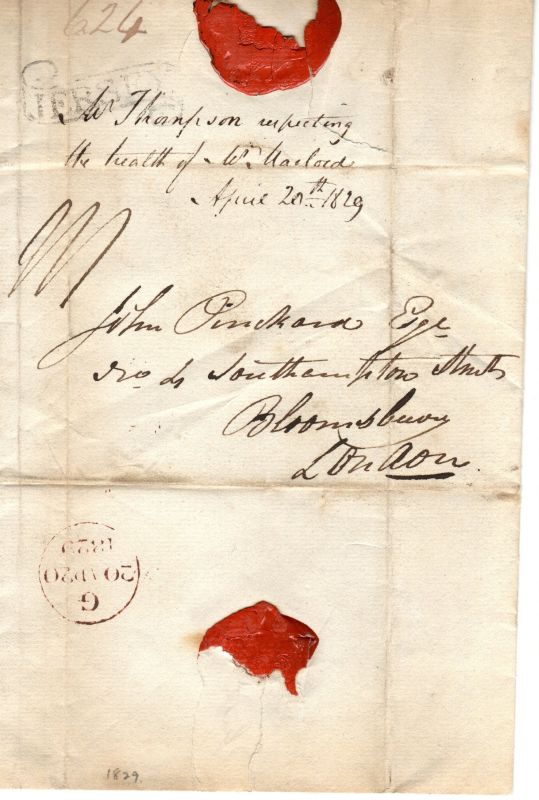 624
Mr Thompson respecting
the health of Mr
April 20th 1829
John Pinckard Esqr
No 4 Southampton Street
Bloomsbury
London.
G
20 AP 20
1829
1829.